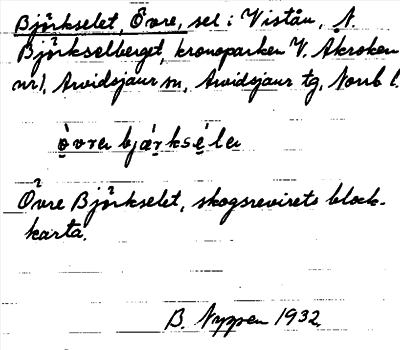 Björkselet, Övre, sel i Vistån, N.
Björkselberget, kronoparken V. Åkroken
nr 1, Arvidsjaur sn, Arvidsjaur tg, Norrb l.
ò̱vra bjæ̀ṟksé̱la
Övre Björkselet, skogsrevirets block-
karta.
B. Nyppen 1932.